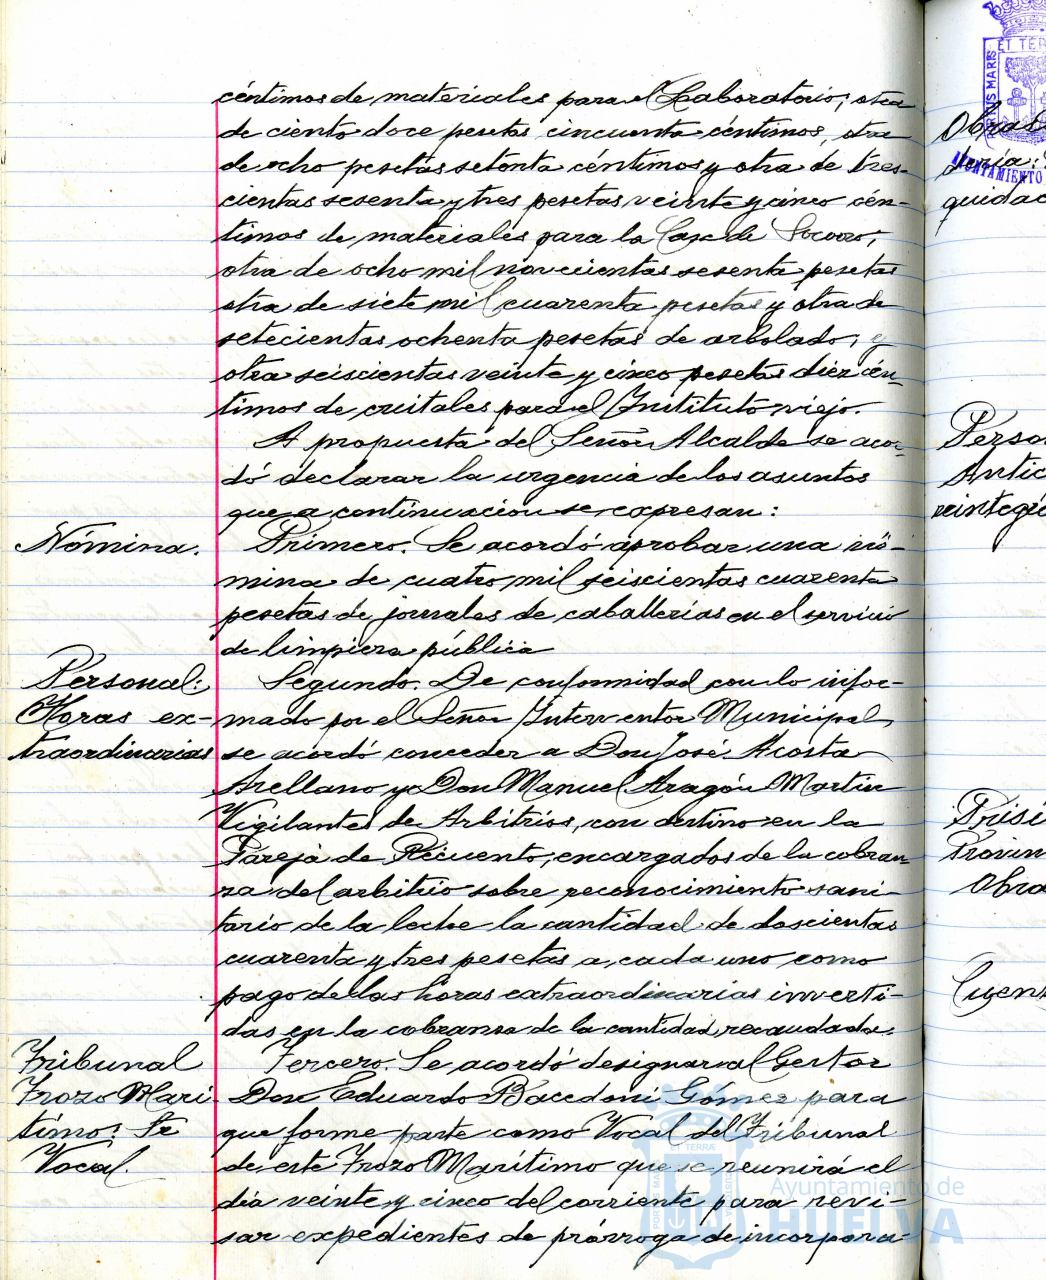 céntimos de materiales para el Laboratorio; otra
de ciento doce pesetas cincuenta céntimos, otra
de ocho pesetas setenta céntimos y otra de tres-
cientas sesenta y tres pesetas veinte y cinco cén-
timos de materiales para la Casa de Socorro;
otra de ocho mil novecientas sesenta pesetas
otra de siete mil cuarenta pesetas y otra de
setecientas ochenta pesetas de arbolado; y
otra seiscientas veinte y cinco pesetas diez cén-
timos de cristales para el Instituto viejo.
A propuesta del Señor Alcalde se acor-
dó declarar la urgencia de los asuntos
que a continuación se expresan:
Nómina.
Primero. Se acordó aprobar una nó-
mina de cuatro mil seiscientas cuarenta
pesetas de jornales de caballerías en el servicio
de limpieza pública
Personal:
Horas ex-
traordinarias
Segundo. De conformidad con lo infor-
mado por el Señor Interventor Municipal,
se acordó conceder a Don José Acosta
Arellano y a Don Manuel Aragón Martin
Vigilantes de Arbitrios, con destino en la
Pareja de Recuento, encargados de la cobran-
za del arbitrio sobre reconocimiento sani-
tario de la leche la cantidad de doscientas
cuarenta y tres pesetas a cada uno como
pago de las horas extraordinarias inverti-
das en la cobranza de la cantidad recaudada.
Tribunal
Trozo Mari-
timo:
Vocal.
Tercero. Se acordó designar al Gestor
Don Eduardo Gómez para
que forme parte como Vocal del Tribunal
de este Trozo Marítimo que se reunirá el
día veinte y cinco del corriente para revi-
sar expedientes de prórroga de incorpora-
Obras
quidac
Perso
Antic
reintegr
Prisi
Provin
Obra
Cuent
AYUNTAMIENTO
Ayuntamiento de
HUELVA